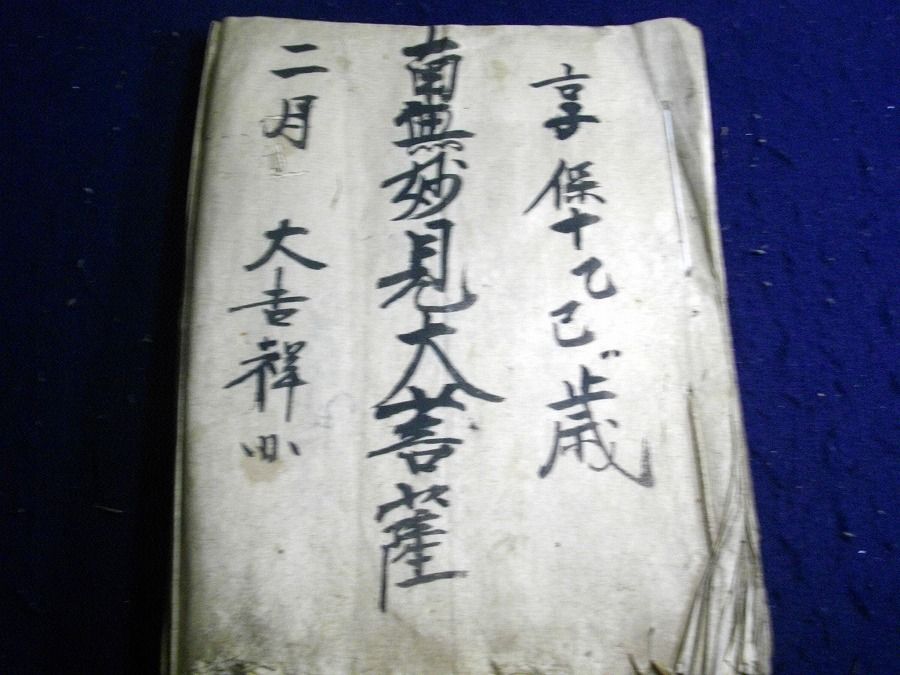 享保十乙巳歳
南無妙見大菩薩
二月 大吉祥